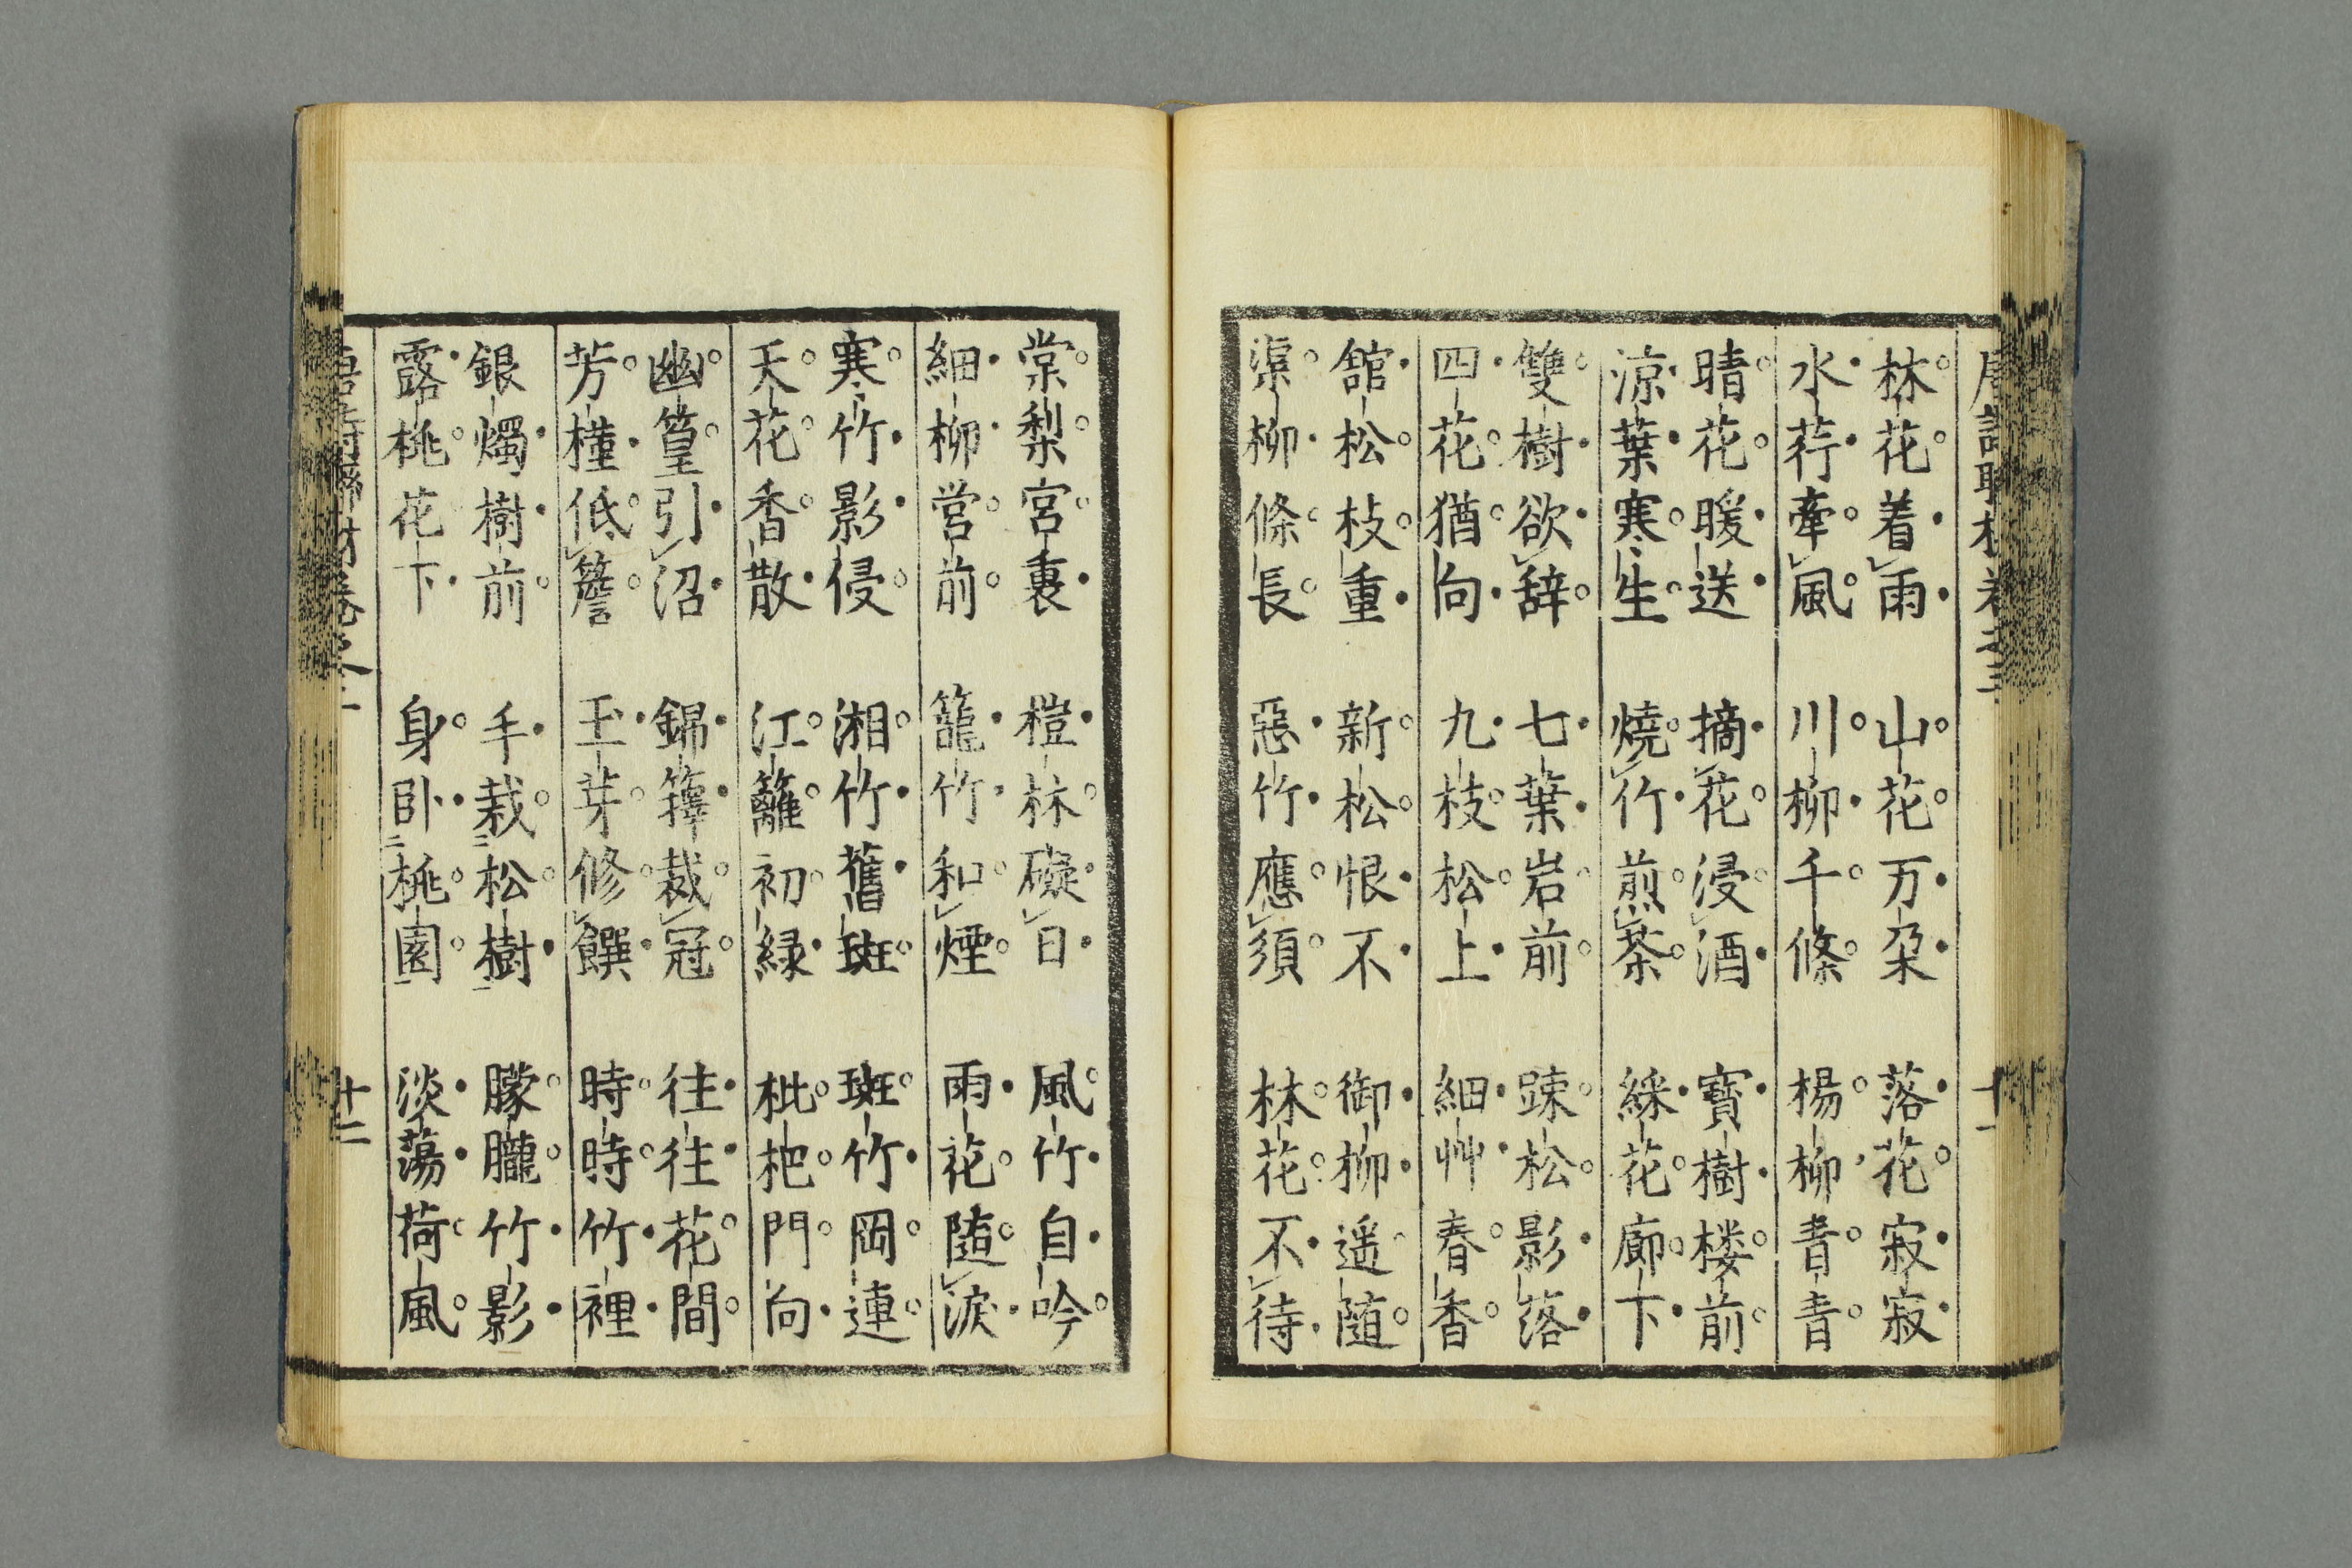 林花着雨　山花万朶　落花寂寂
水荇牽風　川柳千條　楊柳青青
晴花暖送　摘花浸酒　寶樹楼前
涼葉寒生　燒竹煎茶　綵花廊下
雙樹欲辞　七葉岩前　踈松影落
四花猶向　九枝松上　細艸春香
舘松枝重　新松恨不　御柳遥随
渠柳條長　惡竹應須　林花不待
棠梨宮裏　榿林礙日　風竹自吟
細柳営前　籠竹和煙　雨花随淚
寒竹影侵　湘竹舊斑　斑竹岡連
天花香散　江籬初緑　枇杷門向
幽篁引沼　錦籜裁冠　往往花間
芳槿低簷　玉芽修饌　時時竹裡
銀燭樹前　手栽二松樹一　朦朧竹影
露桃花下　身卧二桃園一　淡蕩荷風
十二